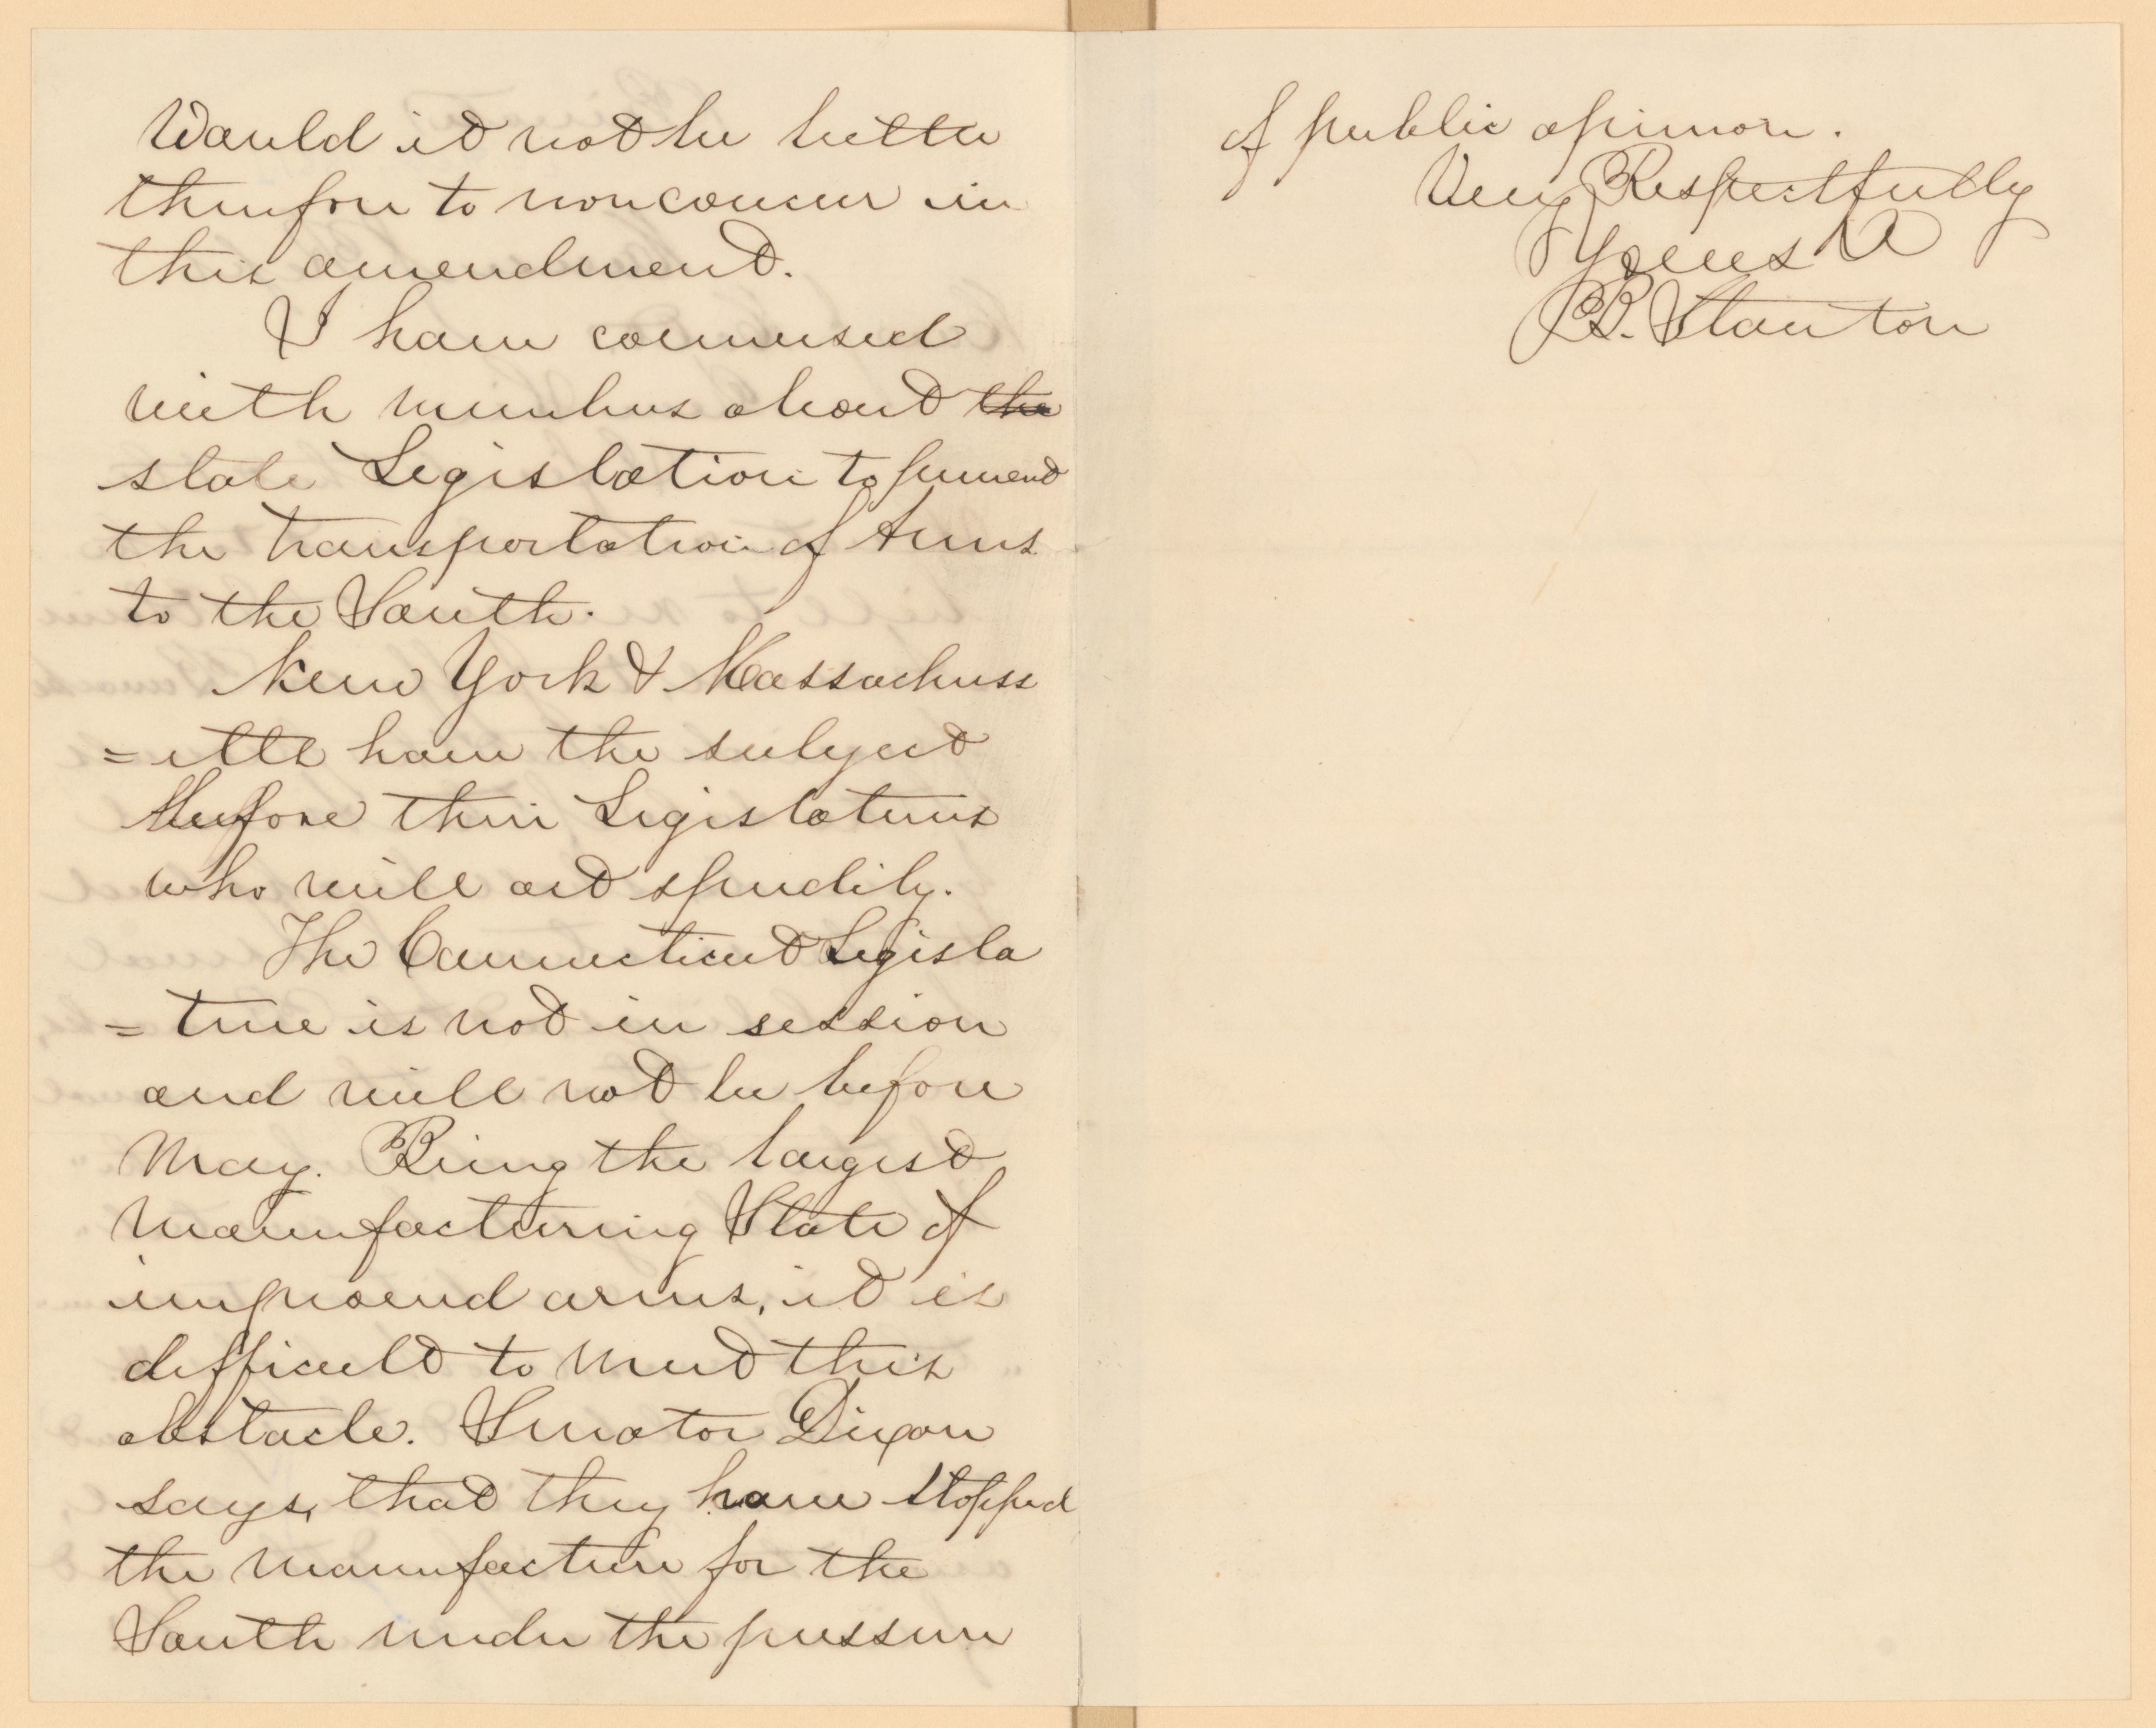 Would it not be better
therefore to nonconcur in
this amendment.
I have conversed
with members about the
state Legislation to prevent
the transportation of Arms
to the South.
New York & Massachuss
=etts have the subject
before their Legislatures
who will act speedily.
The Connecticut Legisla
=ture is not in session
and will not be before
May. Being the largest
manufacturing State of
improved arms, it is
difficult to meet this
obstacle. Senator Dixon
says, that they have stopped
the manufacture for the
South under the pressure
of public opinion.
Very Respectfully
Yours &
B. Stanton